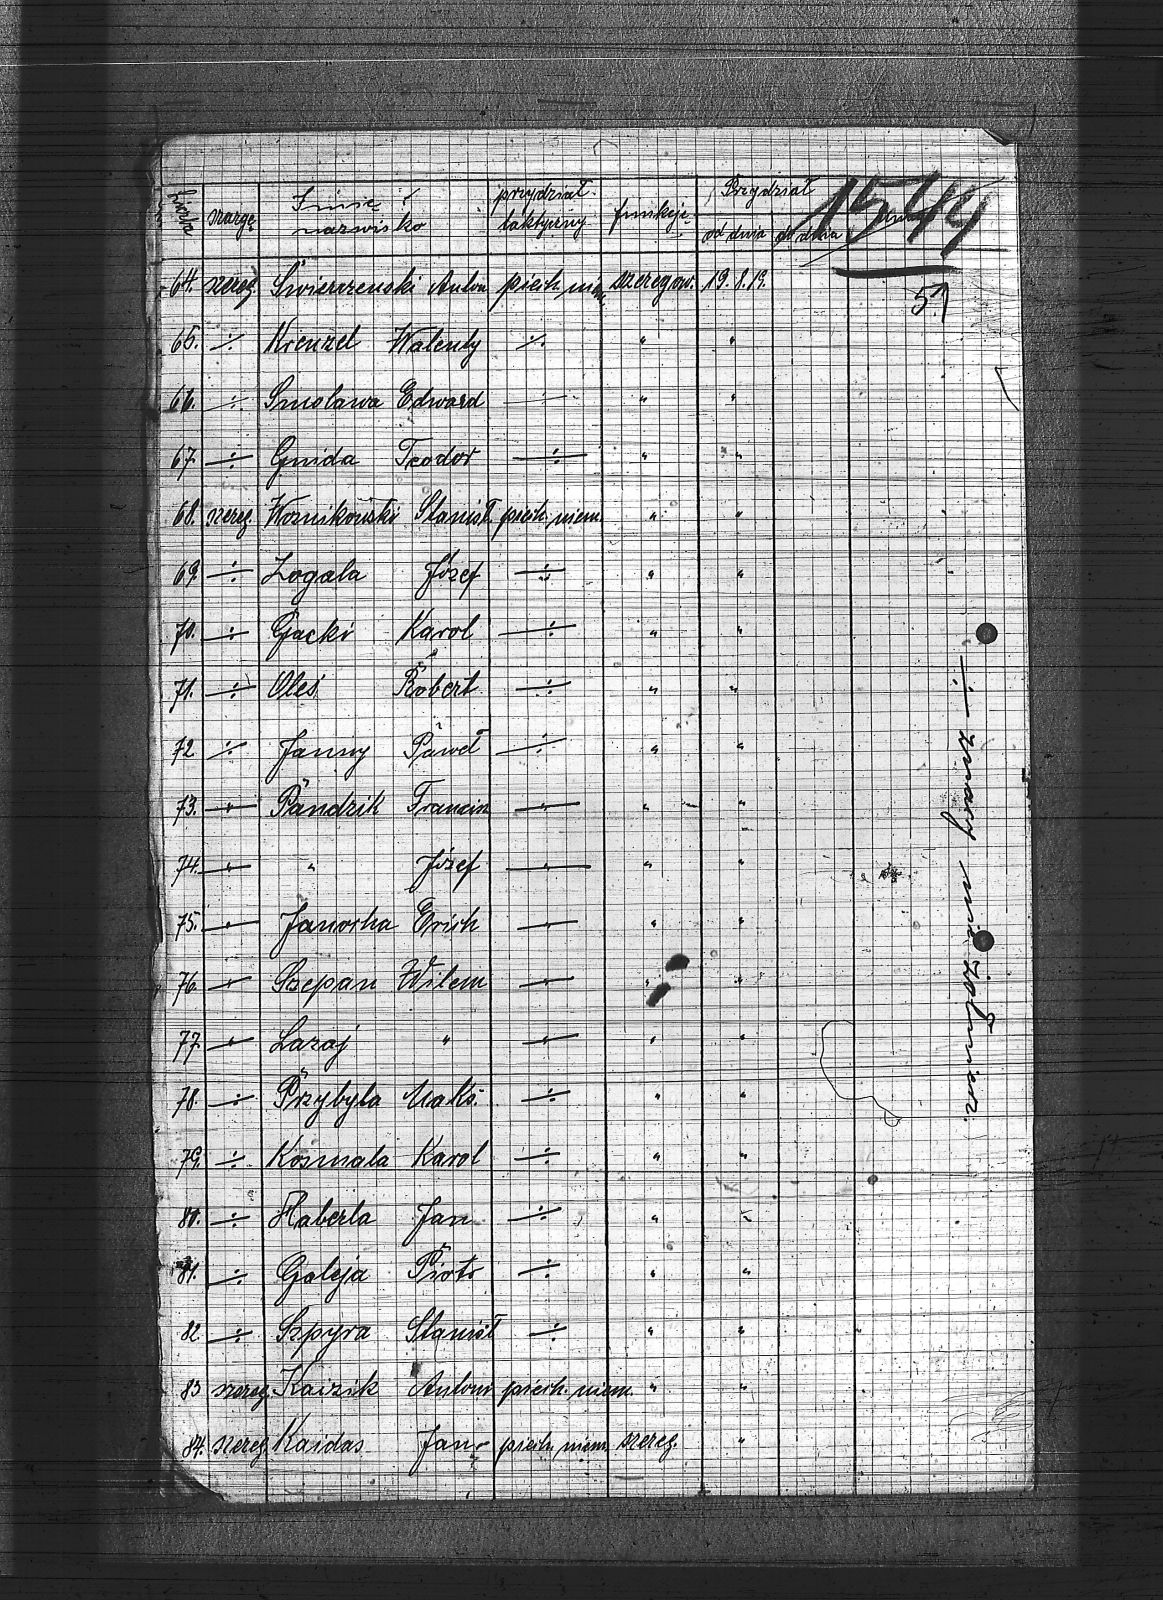 liczba szarge Imie i nazwisko przydział taktyczny funkcje Przydział od dnia do dnia 1544
64. szereg. Świerczenski Anton piech. nie. szeregow. 19.1.19. 51
65. -:- Krenzel Walenty -:- " "
66. -:- Smolawa Edward -:- " "
67. -:- Gmida Teodor -:- " "
68. szereg. Woznikowski Stanisł. piech. niem. " "
69. -:- Zogala Józef -:- " "
70. -:- Gacki Karol -:- " "
71. -:- Oleś Robert -:- " "
72. -:- Janny Paweł -:- " "
73. -"- Pandzik Francisz -"- " "
74. -"- " Józef -"- " "
75. -"- Janocha Erich -"- " "
76. -"- Szepan Wilem -"- " "
77. -"- Lazaj " -"- " "
78. -:- Przybyla Maks. -:- " "
79. -:- Kosmala Karol -:- " "
80. -:- Haberla Jan -:- " "
81. -:- Galeja Piotr -:- " "
82. -:- Szpyra Stanisł -:- " "
83. szereg. Kaizik Antoni piech. niem. " "
84. szereg. Kaidas Jan piech. niem. szereg. "
-:- znaczy nie żołnierz.